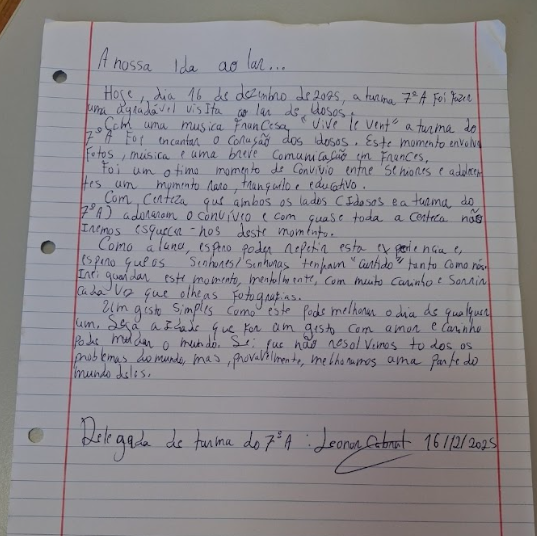 A nossa Ida ao lar...
Hoje, dia 16 de dezembro de 2025, a turma 7ºA foi fazer
uma agradável visita ao lar de idosos.
Com uma musica Francesa "vive le vent" a turma do
7ºA foi encantar o coração dos idosos. Este momento envolveu
fotos, música e uma breve comunicação em Frances.
Foi um otimo momento de convivio entre Senhores e adolescen
tes um momento raro, tranquilo e educativo.
Com Certeza que ambos os lados (Idosos e a turma do
7ºA) adoraram o convivio e com quase toda a certeza não
Iremos esquecer-nos deste momento.
Como aluna, espero poder repetir esta experiencia e,
espero que os Senhores/Senhoras tenham "curtido" tanto como nós.
Irei guardar este momento, mentalmente, com muito carinho e Sorrir
cada vez que olhe as fotografias.
Um gesto simples como este pode melhorar o dia de qualquer
um. Seja a Idade que for um gesto com amor e carinho
pode mudar o mundo. Sei que não resolvimos todos os
problemas do mundo, mas, provavelmente, melhoramos uma parte do
mundo deles.
Delegada de turma do 7ºA: Leonor Cabral 16/12/2025